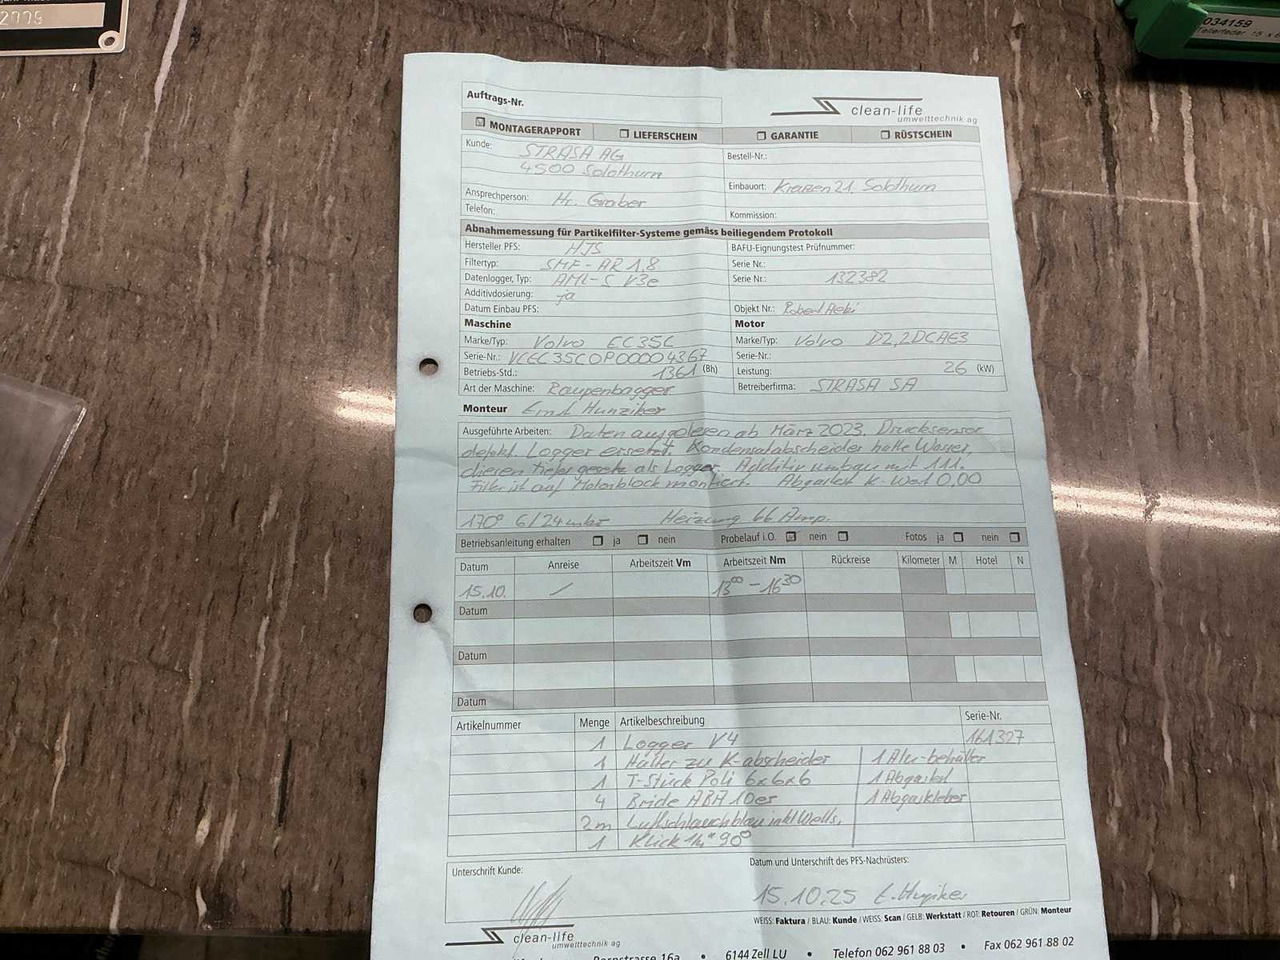 2779
034159
Tellerfeder 15 x
Auftrags-Nr.
clean-life
umwelttechnik ag
MONTAGERAPPORT LIEFERSCHEIN GARANTIE RÜSTSCHEIN
Kunde: STRASA AG
4500 Solothurn
Bestell-Nr.:
Einbauort: Krazen 21, Solothurn
Ansprechperson: Hr. Graber
Telefon:
Kommission:
Abnahmemessung für Partikelfilter-Systeme gemäss beiliegendem Protokoll
Hersteller PFS: HJS BAFU-Eignungstest Prüfnummer:
Filtertyp: SMF-AR 1.8 Serie Nr.:
Datenlogger, Typ: AML-S V3e Serie Nr.: 132382
Additivdosierung: ja
Datum Einbau PFS: Objekt Nr.: Robert Aebi
Maschine Motor
Marke/Typ: Volvo EC35C Marke/Typ: Volvo D2,2DCAE3
Serie-Nr.: VCEC35C0P00004367 Serie-Nr.:
Betriebs-Std.: 1361 (Bh) Leistung: 26 (kW)
Art der Maschine: Raupenbagger Betreiberfirma: STRASA SA
Monteur Ernst Hunziker
Ausgeführte Arbeiten: Daten ausgelesen ab März 2023. Drucksensor
defekt. Logger ersetzt. Kondensatabscheider hatte Wasser,
diesen tiefer gesetz als Logger. Additiv umbau mit 111.
Filter ist auf Motorblock montiert. Abgastest K-Wert 0,00
170° 6/24 mbar Heizung 66 Amp.
Betriebsanleitung erhalten ja nein Probelauf i.O. nein Fotos ja nein
Datum Anreise Arbeitszeit Vm Arbeitszeit Nm Rückreise Kilometer M Hotel N
15.10. / 13⁰⁰ - 16³⁰
Datum
Datum
Datum
Artikelnummer Menge Artikelbeschreibung Serie-Nr.
1 Logger V4 161327
1 Halter zu K-abscheider 1 Alu-behälter
1 T-Stück Poli 6x6x6 1 Abgastest
4 Bride ABA 10er 1 Abgaskleber
2m Luftschlauch blau inkl Wells.
1 Klick 1/4" 90°
Unterschrift Kunde: Datum und Unterschrift des PFS-Nachrüsters:
15.10.25 E. Hunziker
WEISS: Faktura / BLAU: Kunde / WEISS: Scan / GELB: Werkstatt / ROT: Retouren / GRÜN: Monteur
clean-life
umwelttechnik ag
16a • 6144 Zell LU • Telefon 062 961 88 03 • Fax 062 961 88 02